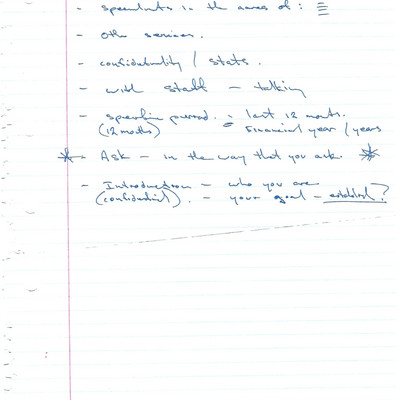 - specialists in the areas of :
- Other services.
- confidentiality / stats.
- with staff - talking
- specific period. - last 12 months.
(12 months) = Financial year / years
* - Ask - in the way that you ask. *
- Introduction - who you are
(confidential). - your goal - establish?